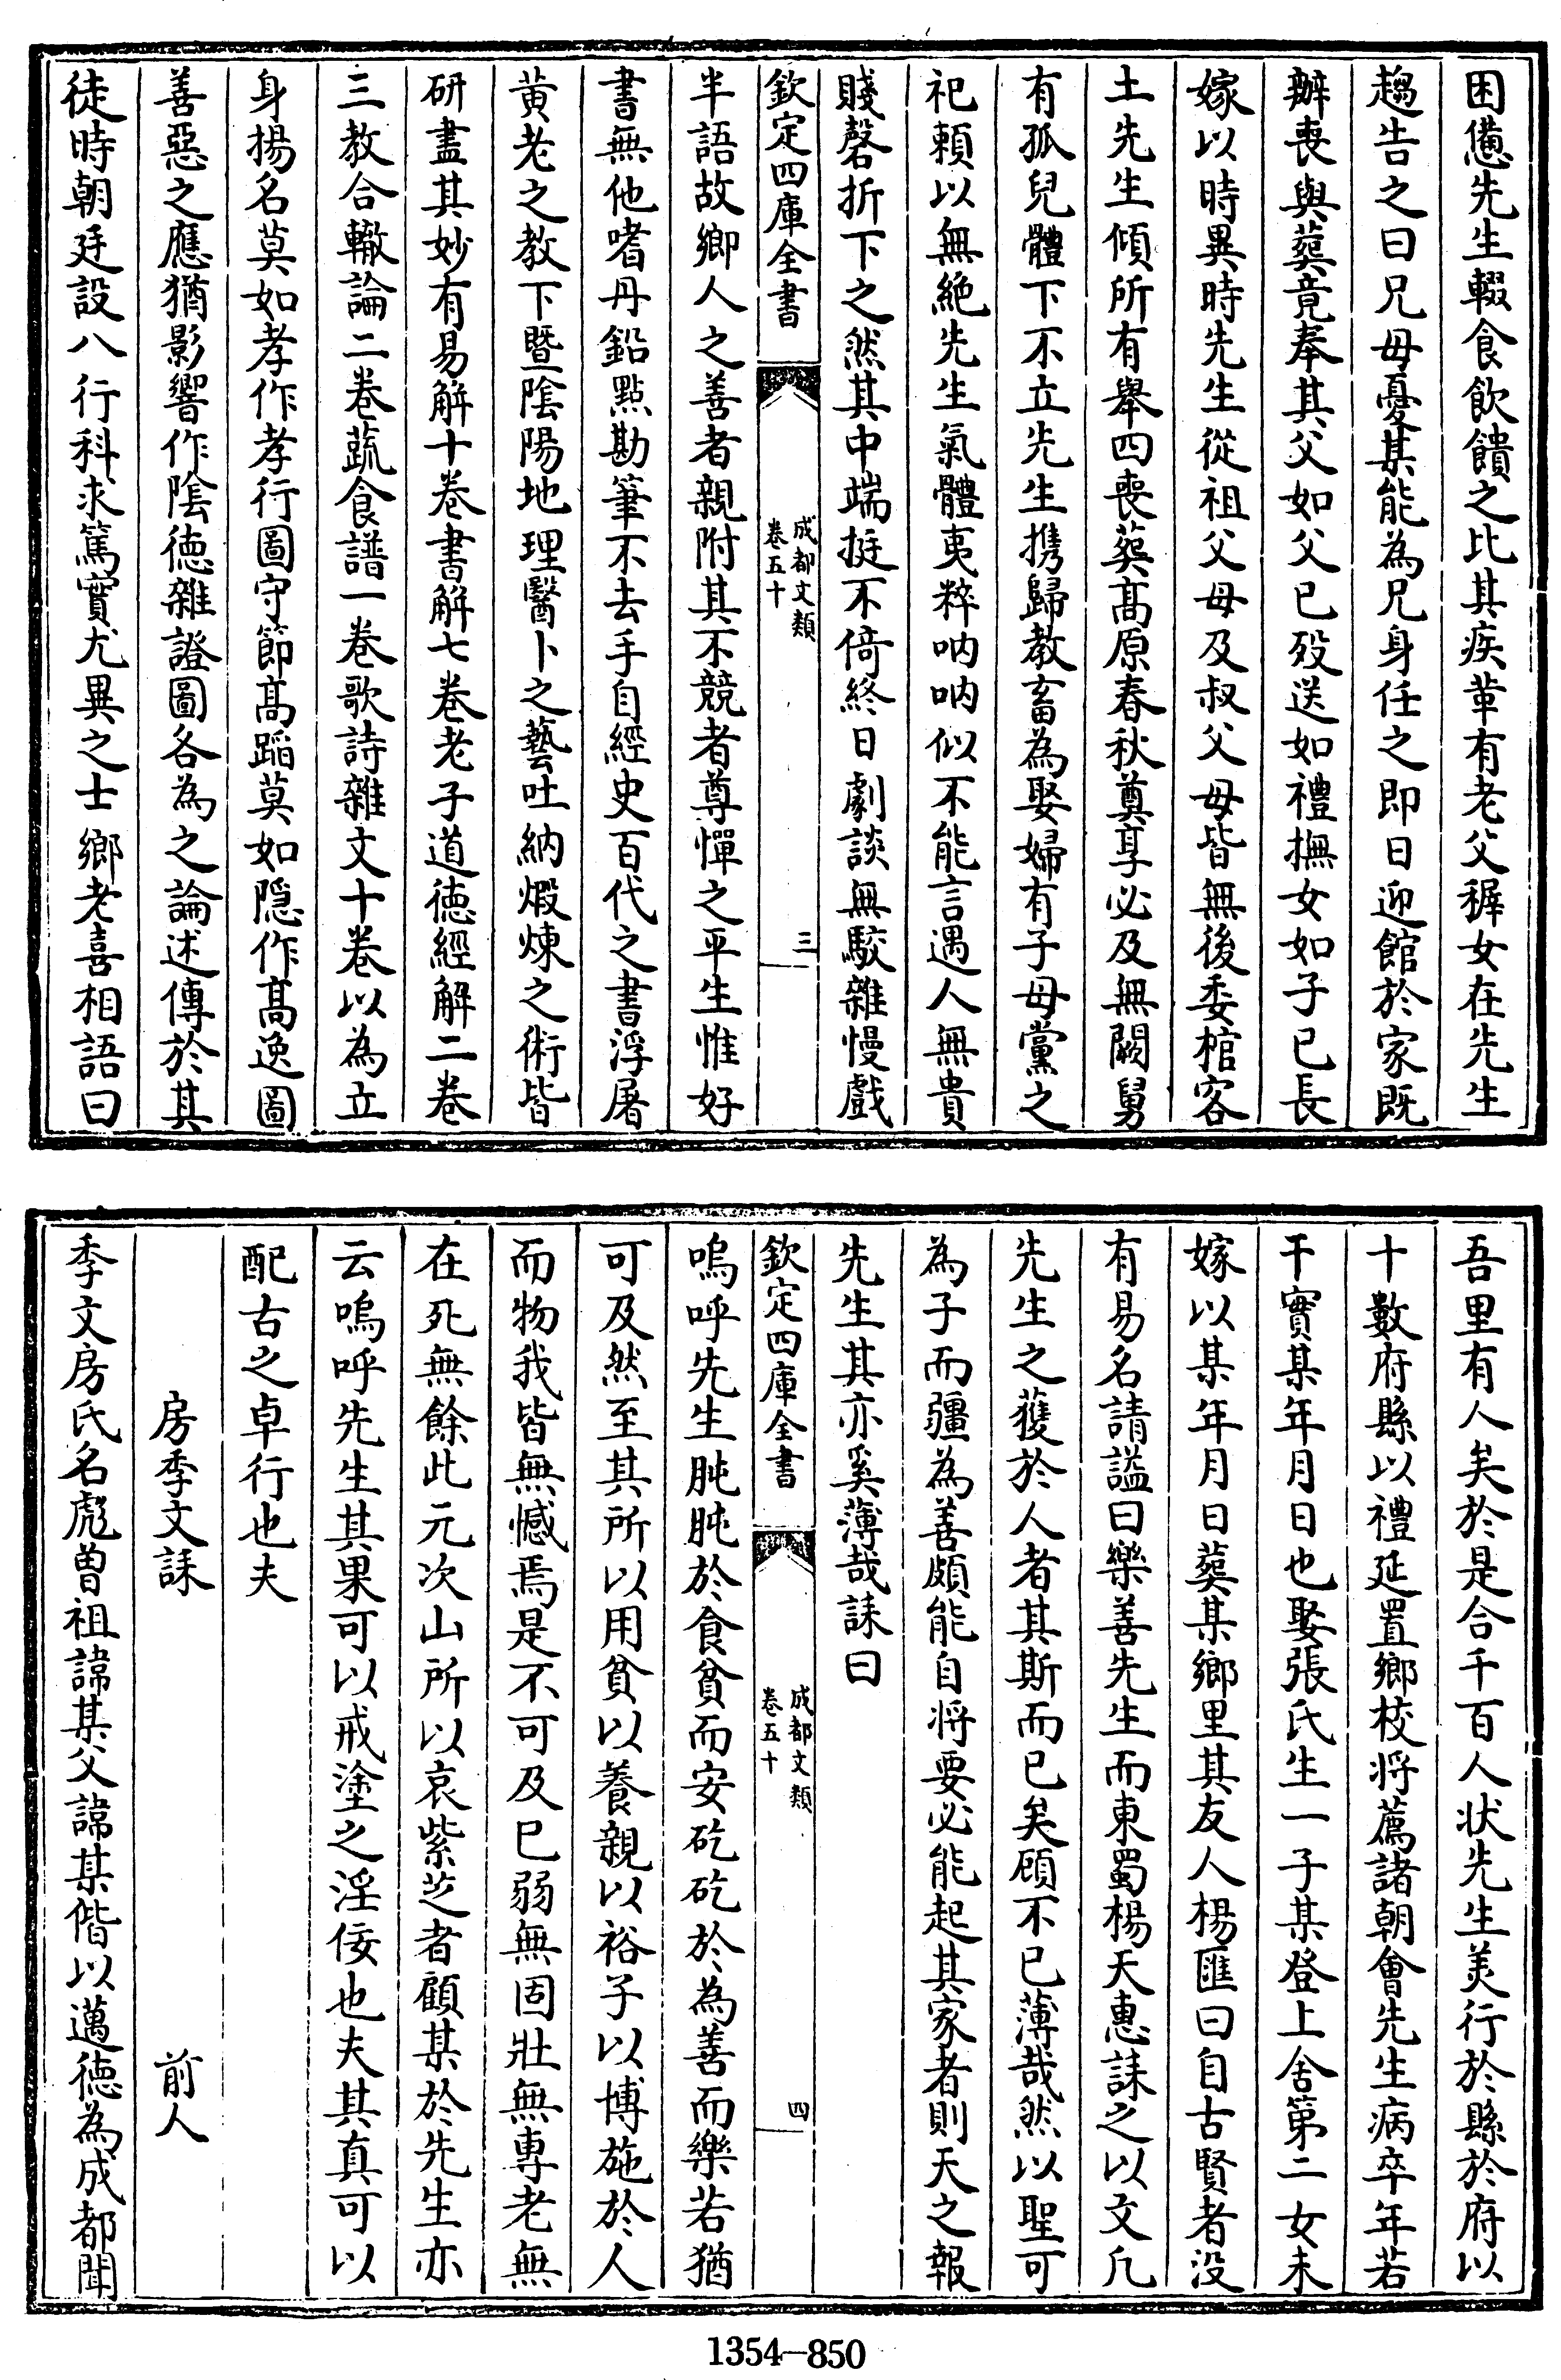 困憊先生輟食飲饋之比其疾革有老父穉女在先生
趨告之曰兄毋憂某能為兄身任之即日迎館於家既
辦喪與葬竟奉其父如父已歿送如禮撫女如子已長
嫁以時異時先生從祖父母及叔父母皆無後委棺客
土先生傾所有舉四喪葬髙原春秋奠享必及無闕舅
有孤兒體下不立先生携歸教畜為娶婦有子母黨之
祀賴以無絶先生氣體夷粹吶吶似不能言遇人無貴
賤磬折下之然其中端挺不倚終日劇談無駮雜慢戲
欽定四庫全書
成都文類
卷五十
三
半語故鄉人之善者親附其不競者尊憚之平生惟好
書無他嗜丹鉛點勘筆不去手自經史百代之書浮屠
黄老之教下暨陰陽地理醫卜之藝吐納煆煉之術皆
研盡其妙有易解十卷書解七卷老子道徳經解二卷
三教合轍論二卷蔬食譜一卷歌詩雜文十卷以為立
身揚名莫如孝作孝行圖守節髙蹈莫如隠作髙逸圖
善惡之應猶影響作陰徳雜證圖各為之論述傳於其
徒時朝廷設八行科求篤實尤異之士鄉老喜相語曰
吾里有人矣於是合千百人状先生美行於縣於府以
十數府縣以禮延置鄉校将薦諸朝會先生病卒年若
干實某年月日也娶張氏生一子某登上舍第二女未
嫁以某年月日葬某鄉里其友人楊匯曰自古賢者没
有易名請謚曰樂善先生而東蜀楊天惠誄之以文凢
先生之獲於人者其斯而已矣頋不已薄哉然以聖可
為子而疆為善頗能自将要必能起其家者則天之報
先生其亦奚薄哉誄曰
欽定四庫全書
成都文類
卷五十
四
嗚呼先生肫肫於食貧而安矻矻於為善而樂若猶
可及然至其所以用貧以養親以裕子以博施於人
而物我皆無憾焉是不可及已弱無固壯無專老無
在死無餘此元次山所以哀紫芝者顧某於先生亦
云嗚呼先生其果可以戒塗之淫佞也夫其真可以
配古之卓行也夫
房季文誄　前人
季文房氏名彪曽祖諱某父諱某偕以邁徳為成都聞
1354—850